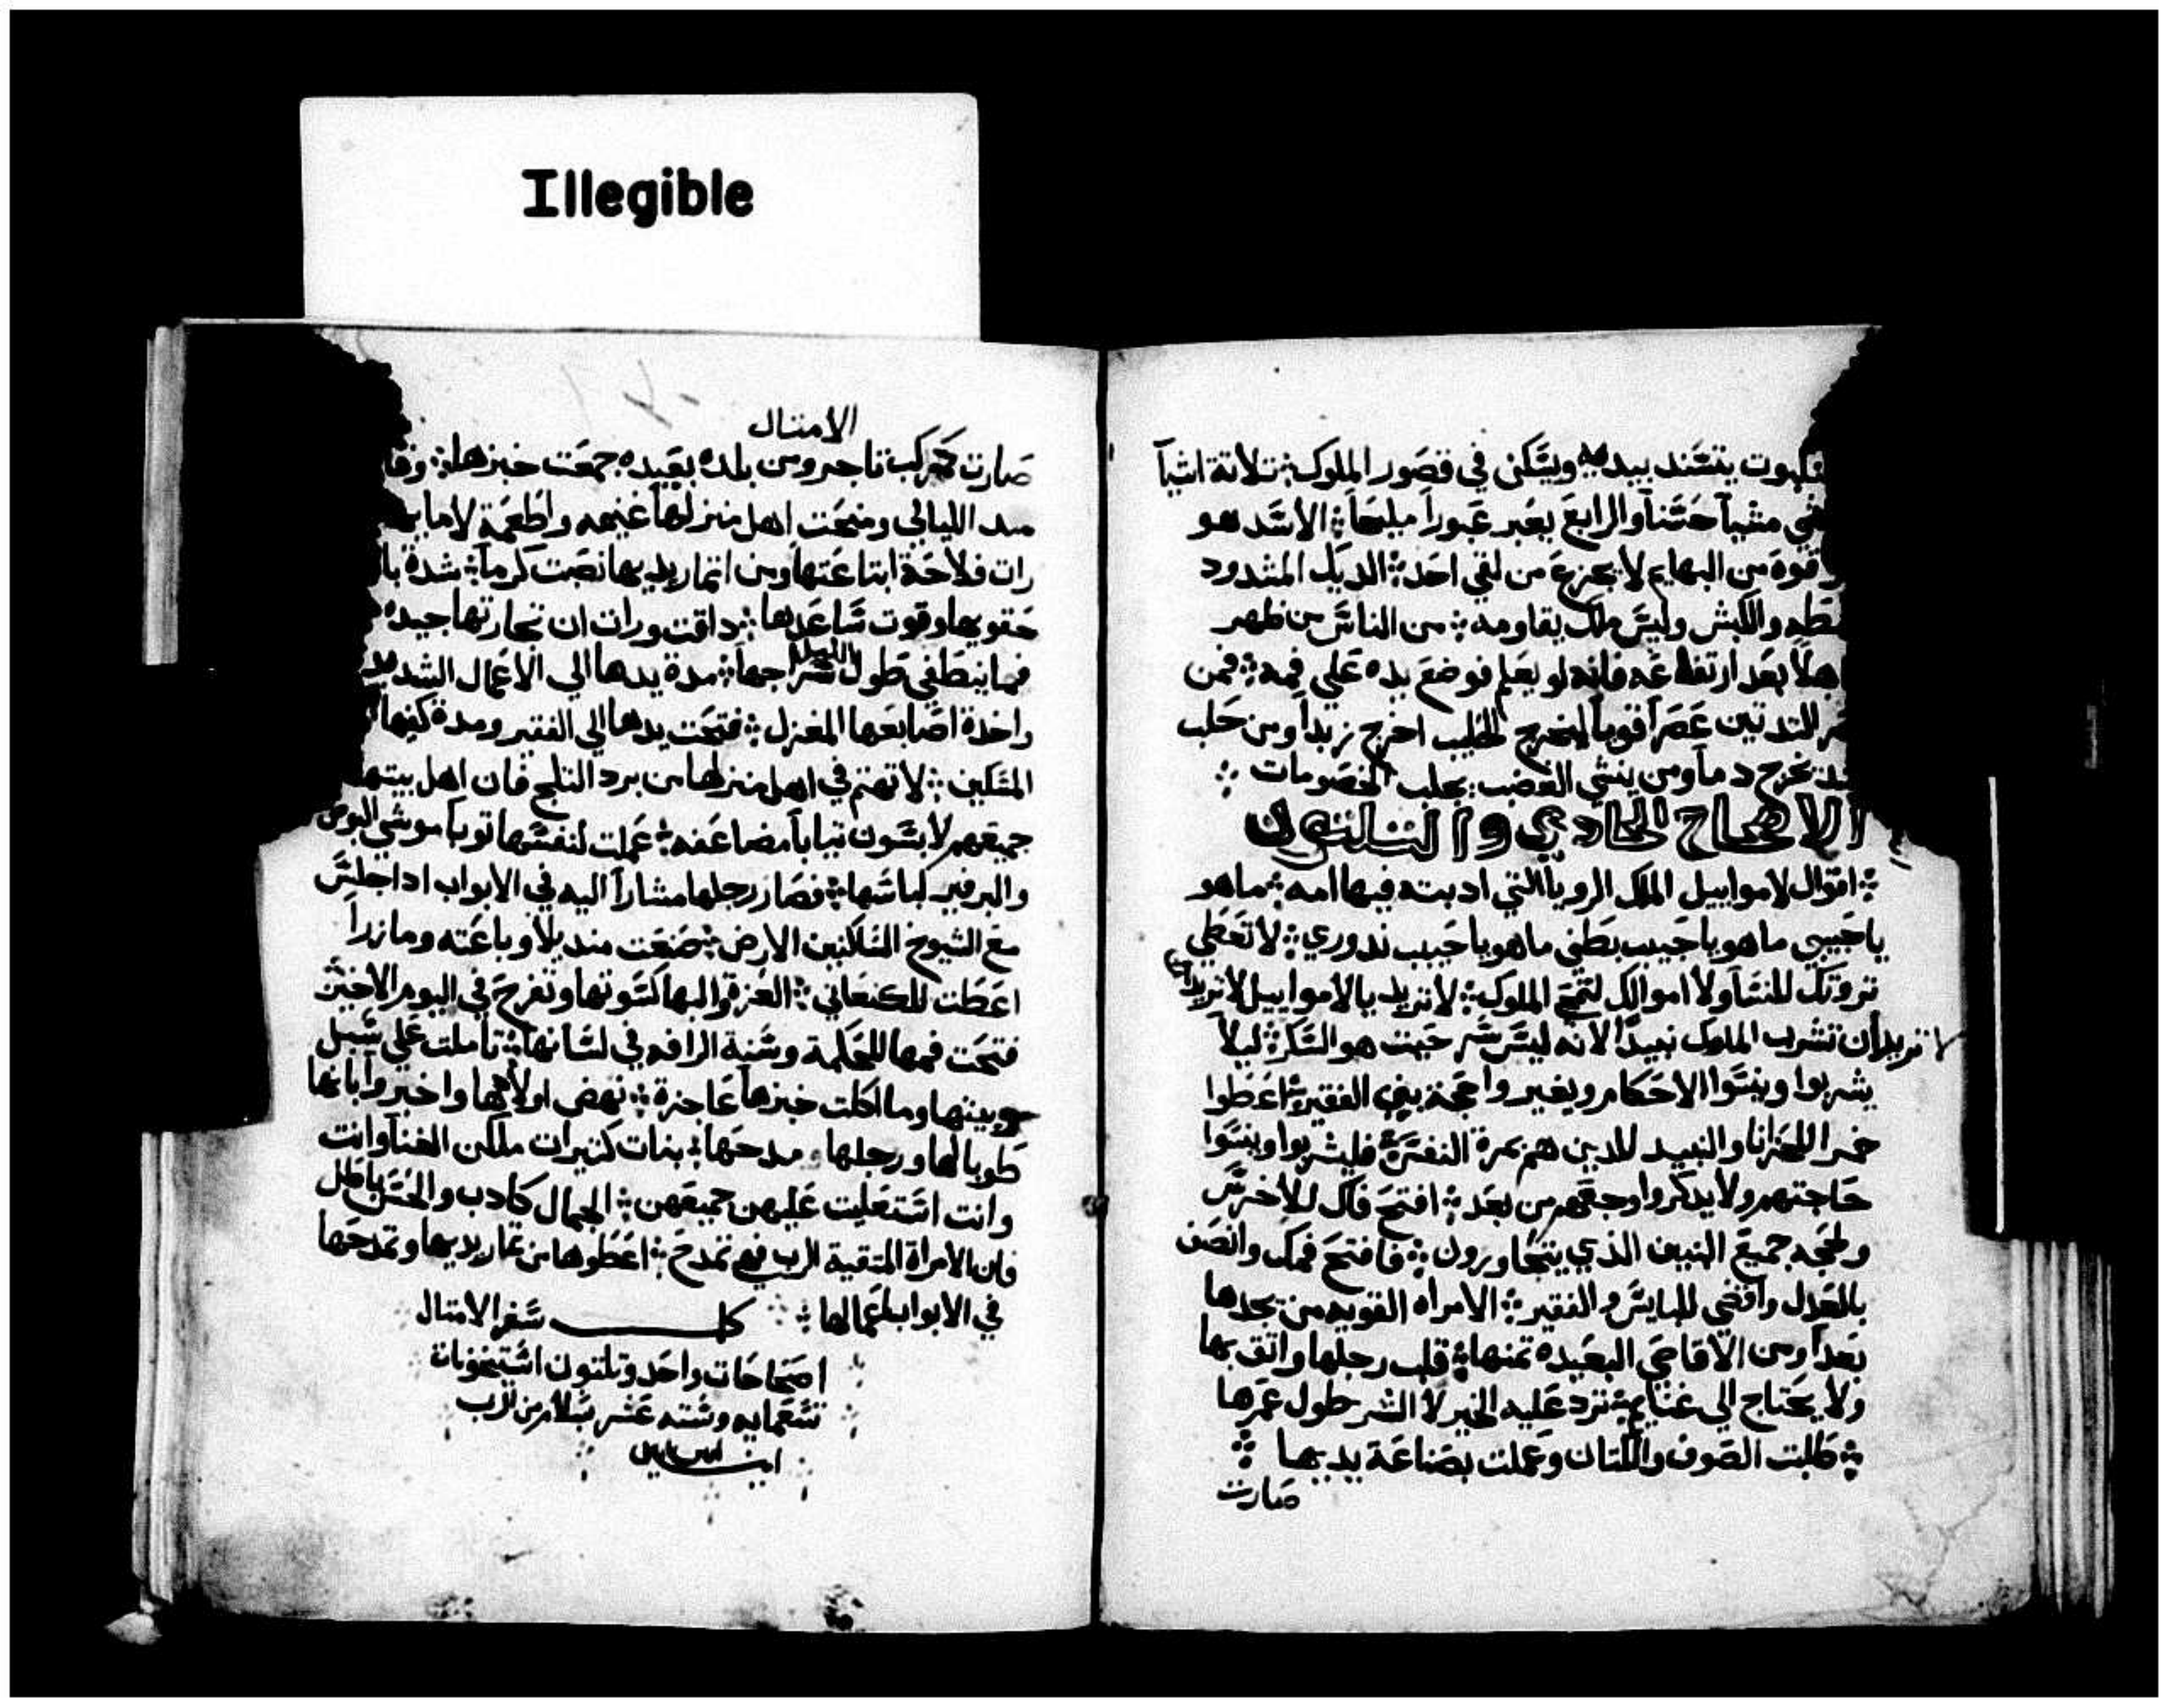 Illegible
يتسند بيديه ويسكن في قصور الملوك: تلاتة اشيآ
مشيآ حسنآ والرابع يعبر عبورآ مليحآ: الاسد هو
قوة من البهايم لا يجزع من لقي احد: الديك المشدود
والكبش وليس ملك يقاومه: من الناس من ظهر
بعد ارتفاعه فانه لو يعلم لوضع يده علي فمه: فمن
عصرآ قويآ ليخرج الحليب اخرج زبدآ ومن حلب
يخرج دمآ ومن ينشي الغضب يجلب الخصومات
الاصحاح الحادي والتلتون
اقوال لاموابيل الملك الرويا التي ادبته فيها امه: ماهو
ياحبيبي ماهو ياحبيب بطني ماهو ياحبيب ندوري: لا تعطي
تروتك للنسآ ولا اموالك لتمح الملوك: لا تريد يا لاموابيل لا تريد
لا تريد ان تشرب الملوك نبيدآ لانه ليس سر حيت هو السكر: ليلآ
يشربوا وينسوا الاحكام ويغيروا حجة بني الفقير: اعطوا
خمرآ للحزانا والنبيد للدين هم بمرة النفس: فليشربوا وينسوا
حاجتهم ولا يدكروا وجعهم من بعد: افتح فاك للاخرس
ولحجه جميع البنين الذي يتجاورون: فافتح فمك وانصف
بالعدل واقضي للبايس والفقير: الامراه القويه من يجدها
بعدآ ومن الاقاصي البعيده تمنها: قلب رجلها واتق بها
ولا يحتاج الي غنايم: ترد عليه الخير لا الشر طول عمرها
طلبت الصوف والكتان وعملت بصناعة يديها
صارت
الامتال
صارت كمركب تاجر ومن بلده بعيده جمعت خبزها:
الليالي ومنحت اهل منزلها غنيمه واطعمة لامايها
رات فلاحة ابتاعتها ومن اتمار يديها نصبت كرمآ: شدة
حقويها وقوت ساعدها: داقت ورات ان تجارتها جيده
فما ينطفي طول الليل سراجها: مدة يدها الي الاعمال الشديد
واخدة اصابعها المغزل: فتحت يدها الي الفقير ومدة كفيها
المسكين: لا تهتم في اهل منزلها من برد التلج فان اهل بيتها
جميعهم لابسون تيابآ مضاعفه: عملت لنفسها توبآ موشي البوص
والبرفير لباسها: فصار رجلها مشارآ اليه في الابواب اداجلس
مع الشيوخ السلاكنين الارض: صنعت منديلآ وباعته ومازرآ
اعطت للكنعاني: العزة والبها كسوتها وتفرح في اليوم الاخير
فتحت فمها للحكمة وسنة الرافه في لسانها: تاملت علي سبل
بيتها وما اكلت خبزها عاجزة: نهض اولادها واخبروا بانها
طوبا لها ورجلها مدحها: بنات كتيرات ملكن الغنآ وانت
وانت استعليت عليهن جميعهن: الجمال كادب والحسن باطل
فان الامراة المتقية الرب فهي تمدح: اعطوها من تمار يديها وتمدحها
في الابواب اعمالها
كمل سفر الامتال
اصحاحات واحد وتلتون استيخونات
تسعمايه وسته عشر بسلام من الرب
امين امين امين